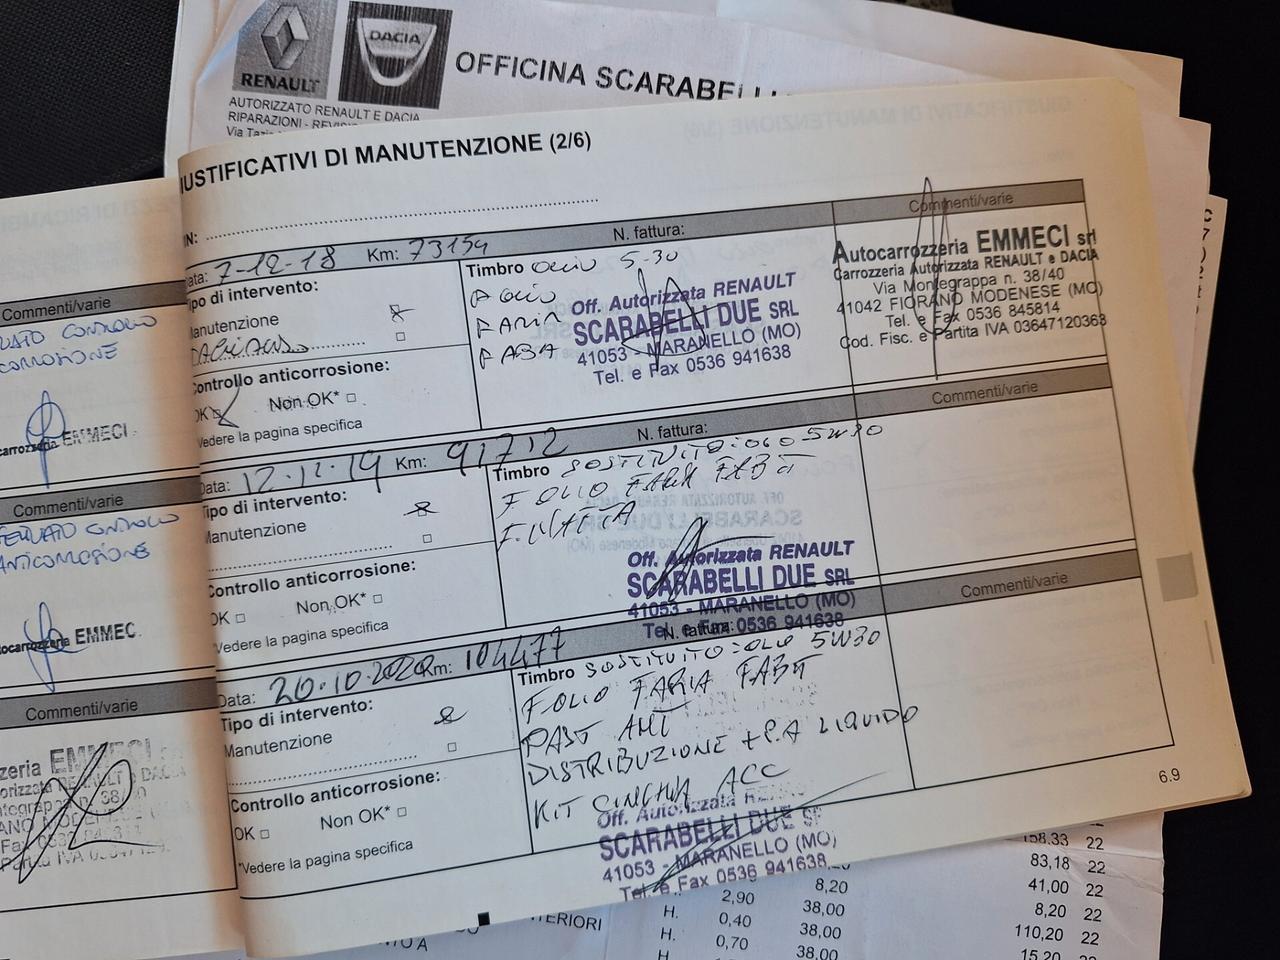 RENAULT
DACIA
OFFICINA SCARABELLI
AUTORIZZATO RENAULT E DACIA
RIPARAZIONI - REVISI
Via Tazi
IUSTIFICATIVI DI MANUTENZIONE (2/6)
IN:
Data: 7-12-18 Km: 73154 N. fattura:
Commenti/varie
Tipo di intervento:
Manutenzione
Controllo anticorrosione:
OK Non OK*
Vedere la pagina specifica
Timbro OLIO 5-30
F OLIO
F ARIA
F ABA
Off. Autorizzata RENAULT
SCARABELLI DUE SRL
41053 - MARANELLO (MO)
Tel. e Fax 0536 941638
Autocarrozzeria EMMECI srl
Carrozzeria Autorizzata RENAULT e DACIA
Via Montegrappa n. 38/40
41042 FIORANO MODENESE (MO)
Tel. e Fax 0536 845814
Cod. Fisc. e Partita IVA 03647120363
Data: 12.11.19 Km: 91712 N. fattura:
Commenti/varie
Tipo di intervento:
Manutenzione
Controllo anticorrosione:
OK Non OK*
*Vedere la pagina specifica
Timbro SOSTITUITO: OLIO 5W30
F OLIO FARIA FABIT
F. NAFTA
Off. Autorizzata RENAULT
SCARABELLI DUE SRL
41053 - MARANELLO (MO)
Tel. e Fax 0536 941638
Data: 20.10.2020 Km: 104477 N. fattura:
Commenti/varie
Tipo di intervento:
Manutenzione
Controllo anticorrosione:
OK Non OK*
*Vedere la pagina specifica
Timbro SOSTITUITO: OLIO 5W30
FOLIO FARIA FABIT
PAST ANT
DISTRIBUZIONE + P.A LIQUIDO
KIT CINGHIA ACC
Off. Autorizzata RENAU
SCARABELLI DUE SR
41053 - MARANELLO (MO)
Tel. e Fax 0536 941638
6.9
Commenti/varie
CONTROLLO
CORROSIONE
carrozzeria EMMECI
Commenti/varie
CONTROLLO
ANTICORROSIONE
tocarrozzeria EMMEC
Commenti/varie
zeria EMMECI
158,33 22
83,18 22
8,20 41,00 22
H. 2,90 38,00 8,20 22
H. 0,40 38,00 110,20 22
H. 0,70 38,00 15,20 22
TERIORI